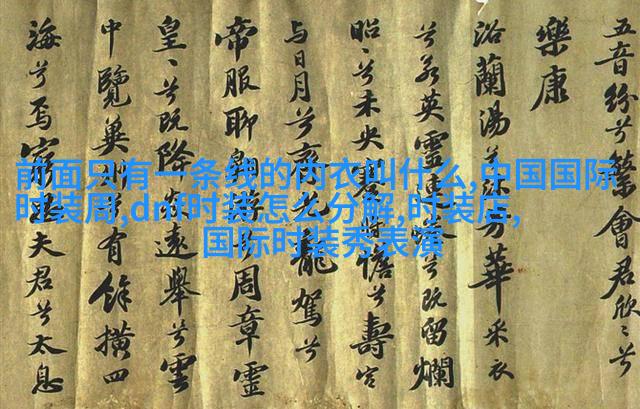 五音紛兮繁會君欣〻兮
樂康
浴蘭湯兮沐芳華采衣
兮若英靈連兮既留爛
昭〻兮未央將憺兮壽宮
与日月兮齊光龍駕兮
帝服聊兮周章靈
皇〻兮既降遠舉兮雲
中覽冀州兮有餘橫四
海兮焉窮夫君兮太息
前面只有一条线的内衣叫什么,中国国际
时装周,dnf时装怎么分解,时装店,
国际时装秀表演